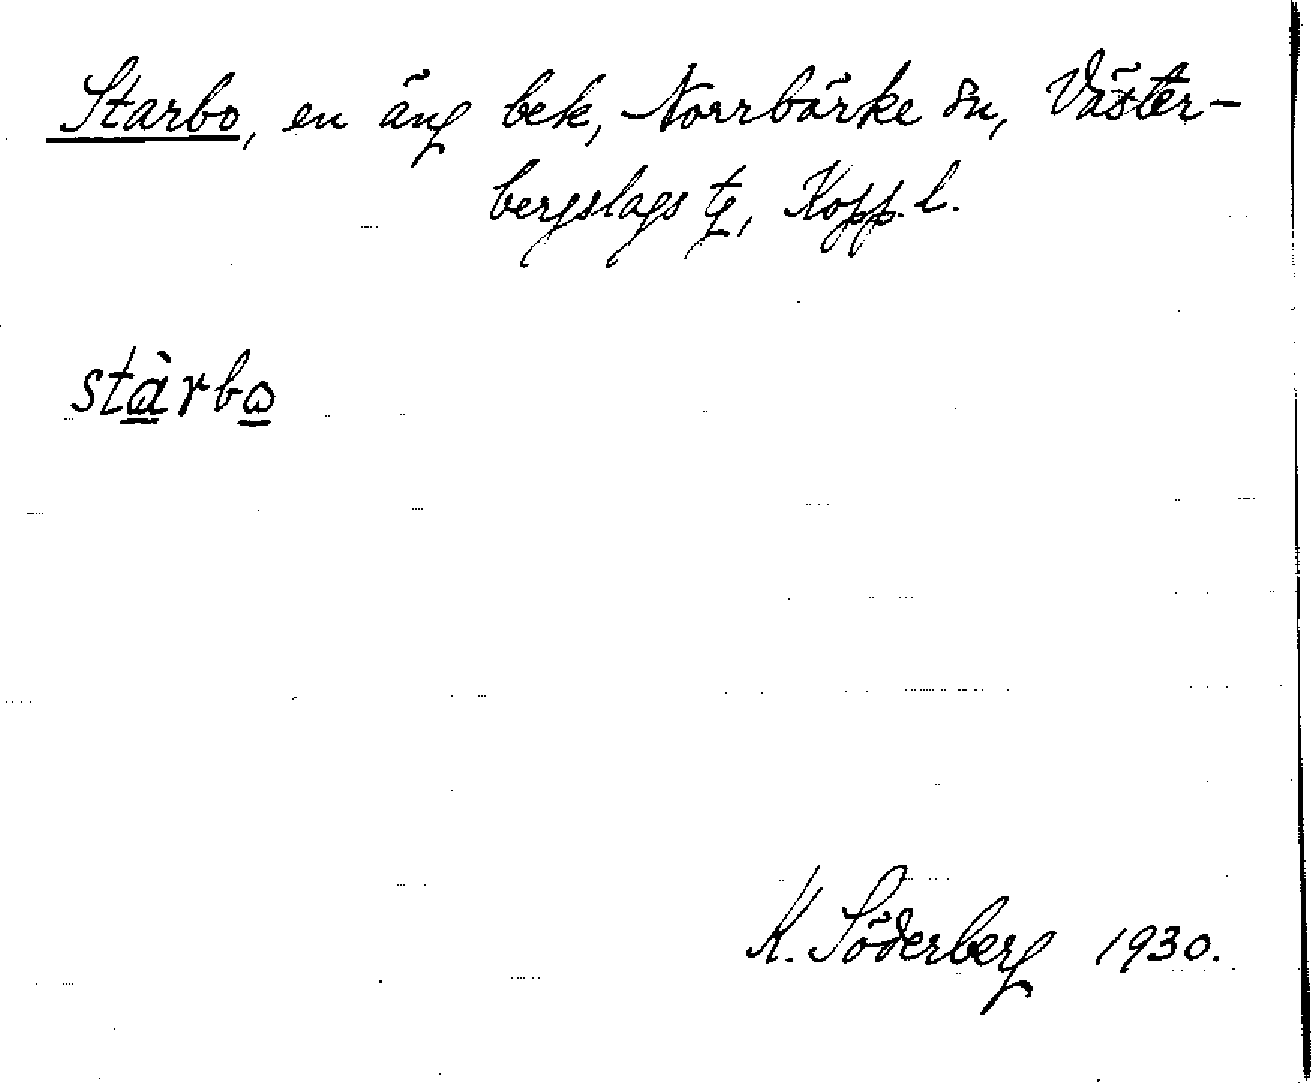 Starbo, en äng bek, Norrbärke sn, Väster-
bergslags tg, Kopp. l.
stàrbo
K. Söderberg 1930.